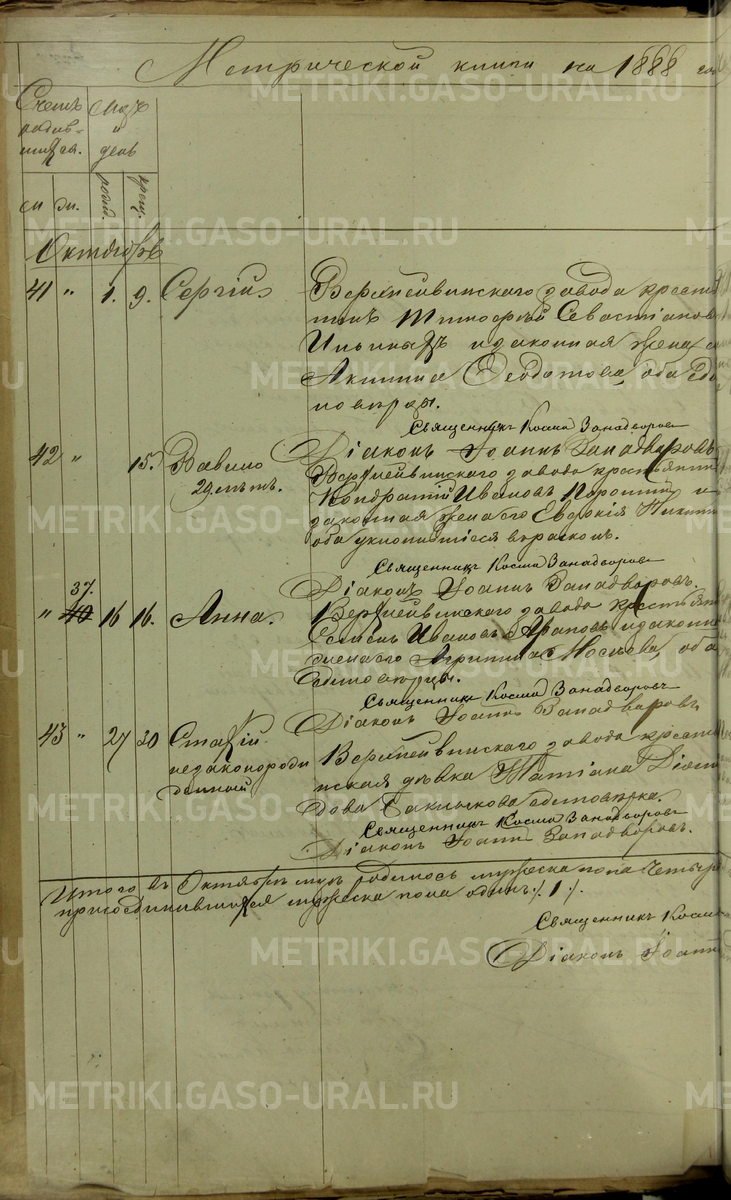 Метрической книги на 1888 го
Счетъ родив-шихся.
Мѣсяцъ и день
м. ж. рожд. крещ.
Октябрь
41 " 1. 9. Сергій
Верхнейвинскаго завода крестья
нинъ Тимоѳей Севастіановъ
Ильиныхъ и законная жена
Акилина Ѳеодотова, оба еди
новѣрцы.
Священникъ Косма Занадворовъ
Діаконъ Іоаннъ Занадворовъ
42 " 15. Вавило
29 лѣтъ.
Верхнейвинскаго завода крестьянинъ
Кондратій Ивановъ и
законная жена его Евдокія
оба уклонившіеся въ расколъ.
Священникъ Косма Занадворовъ
Діаконъ Іоаннъ Занадворовъ.
" 37. 40 16 16. Анна.
Верхнейвинскаго завода крестьянинъ
Семенъ Ивановъ Араповъ и законна
жена его Агрипина Мосѣева, оба
единовѣрцы.
Священникъ Косма Занадворовъ
Діаконъ Іоаннъ Занадворовъ
43 " 27 30 Стахій
незаконорожденный
Верхнейвинскаго завода крестья
нская дѣвка Татіана Діоми
дова единовѣрка.
Священникъ Косма Занадворовъ
Діаконъ Іоаннъ Занадворовъ.
Итого въ Октябрѣ мцѣ родилось мужеска пола четыре
присоединившихся мужеска пола одинъ ./. 1 ./.
Священникъ Косма
Діаконъ Іоаннъ
METRIKI.GASO-URAL.RU